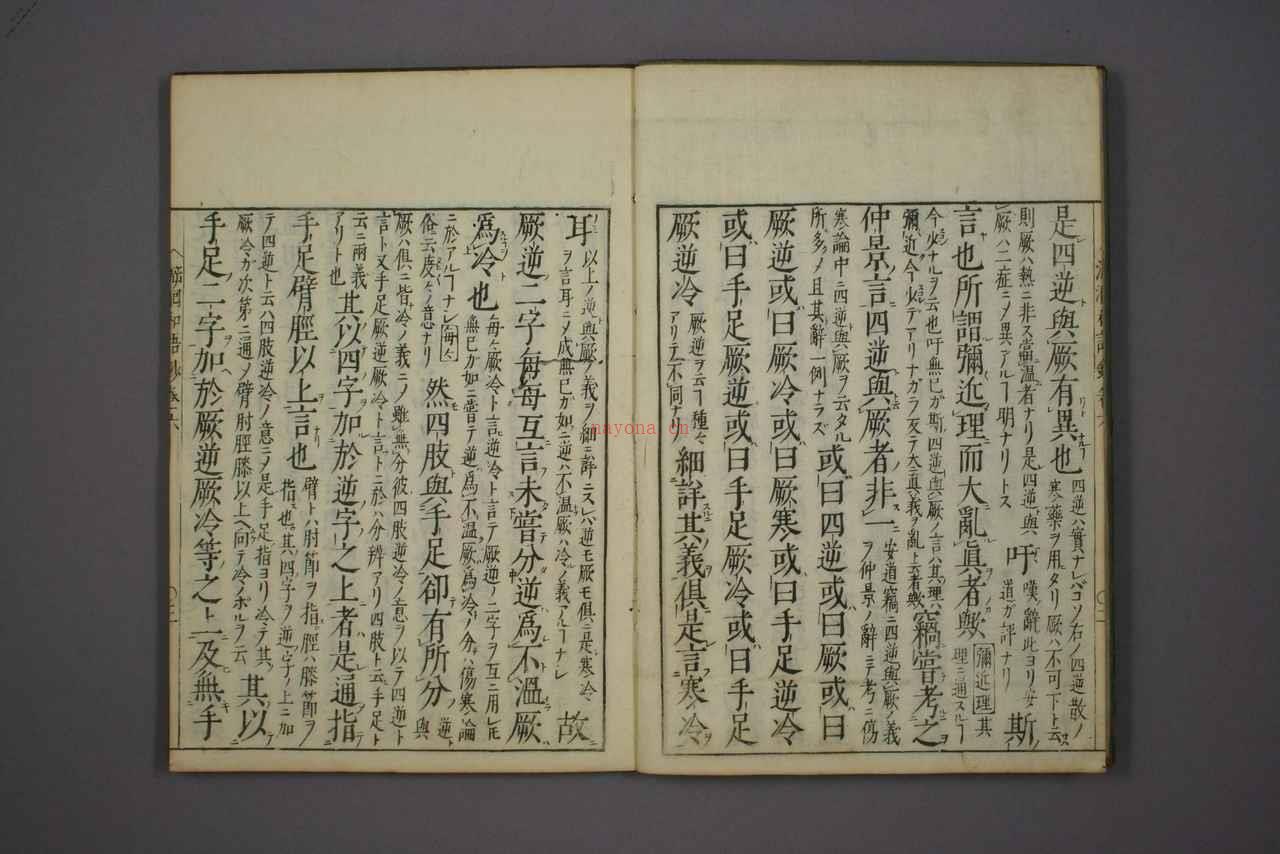 是四逆與厥有異也 四逆ハ實ナレバコソ右ノ四逆散ノ寒藥ヲ用タリ厥ハ不可下ト云
則厥ハ熱ニ非ス當温者ナリ是四逆與厥ハ二症ニメ異アルヿ明ナリトス 吁 嘆辭此ヨリ安道ガ評ナリ 斯
言也所謂彌近理而大亂眞者歟 彌近理其理ニ通スルヿ
今少ナルヲ云也吁無已ガ斯四逆與厥ノ言ハ其理ハ彌近今少テアリナガラ反テ大ニ眞義ヲ亂ト云者歟 竊嘗考之
仲景言四逆與厥者非一 安道竊ニ四逆與厥ノ義ヲ仲景ノ辭ニ考ニ傷
寒論中ニ四逆與厥ヲ云タル所多メ且其辭一例ナラズ 或曰四逆或曰厥或曰
厥逆或曰厥冷或曰厥寒或曰手足逆冷
或曰手足厥逆或曰手足厥冷或曰手足
厥逆冷 厥逆ヲ云フ種々アリテ不同ナリ 細詳其義俱是言寒冷
耳 以上ノ逆與厥ノ義ヲ細ニ詳ニスレバ逆モ厥モ俱ニ是寒冷ヲ言耳ニメ成無已ガ如ニ逆ハ不温厥ハ冷ノ義アルヿナレ 故
厥逆二字每每互言未嘗分逆爲不温厥
爲冷也 每々厥冷ト言逆冷ト言テ厥逆ノ二字ヲ互ニ用レ𪜈無已ガ如ニ嘗テ逆爲不温厥爲冷ノ分ハ傷寒論
ニ於アルヿナレ 每々俗云度々ノ意ナリ 然四肢與手足卻有所分 逆ト與
厥ハ俱ニ皆冷ノ義ニメ雖無分彼四肢逆冷ノ意ヲ以テ四逆ト言ト又手足厥逆厥冷ト言トニ於ハ分辨アリ四肢ト云手足ト
云ニ兩義アリト也 其以四字加於逆字之上者是通指
手足臂脛以上言也 臂トハ肘節ヲ指脛ハ膝節ヲ指也其四字ヲ逆字ノ上ニ加
テ四逆ト云ハ四肢逆冷ノ意ニメ是手足指ヨリ冷テ其厥冷ガ次第ニ通メ臂肘脛膝以上ヘ向テ冷ノボルヲ云 其以
手足二字加於厥逆厥冷等之上及無手